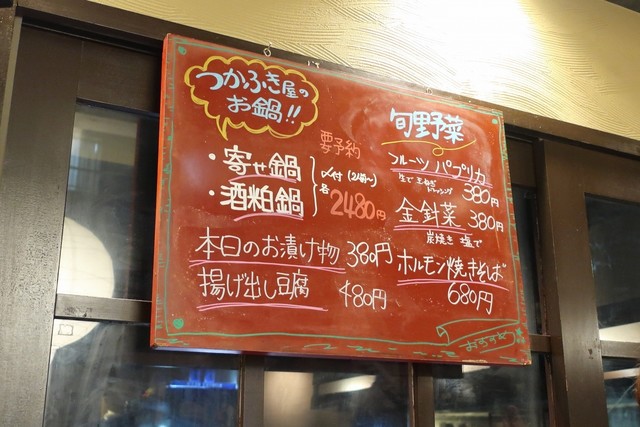 つかふき屋の
お鍋!!
要予約
・寄せ鍋
・酒粕鍋
〆付(2人前〜)
各2480円
本日のお漬け物 380円
揚げ出し豆腐 480円
旬野菜
フルーツパプリカ
380円
金針菜 380円
炭焼き 塩で
ホルモン焼きそば
680円
おすすめ